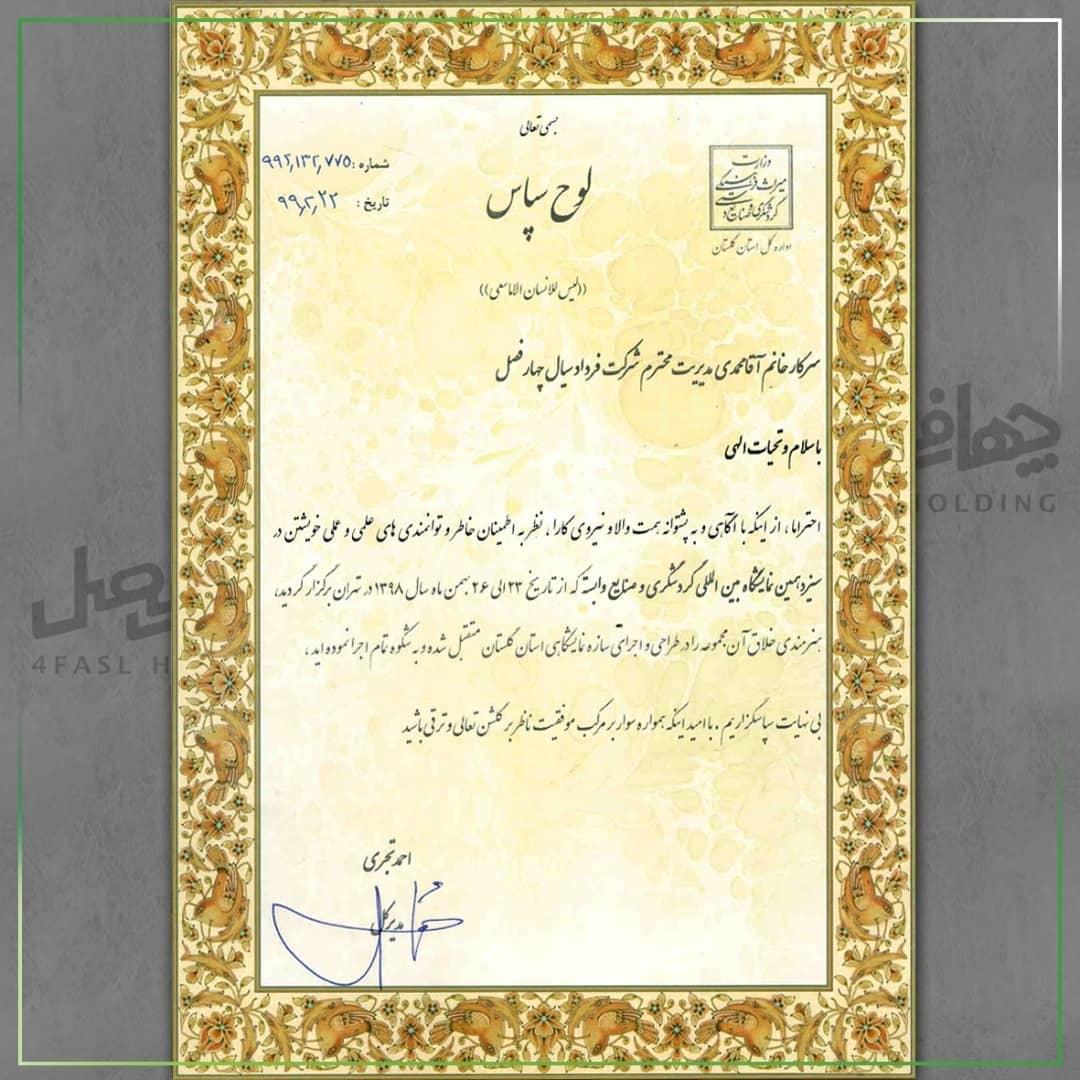 بسمه تعالی
شماره: ۹۹۲,۱۳۲,۷۷۵
تاریخ: ۹۹,۲,۲۲
لوح سپاس
وزارت
میراث فرهنگی
گردشگری و صنایع دستی
اداره کل استان گلستان
((لیس للانسان الا ماسعی))
سرکار خانم آقامحمدی مدیریت محترم شرکت فرداد سیال چهار فصل
با سلام و تحیات الهی
احتراما، از اینکه با آگاهی و به پشتوانه همت والا و نیروی کارا، نظر به اطمینان خاطر و توانمندی های علمی و عملی خویشتن در
سیزدهمین نمایشگاه بین المللی گردشگری و صنایع وابسته که از تاریخ ۲۳ الی ۲۶ بهمن ماه سال ۱۳۹۸ در تهران برگزار گردید،
هنرمندی خلاق آن مجموعه را در طراحی و اجرای سازه نمایشگاهی استان گلستان متقبل شده و به شکوه تمام اجرا نموده اید،
بی نهایت سپاسگزاریم. با امید اینکه همواره سوار بر مرکب موفقیت ناظر بر گلشن تعالی و ترقی باشید
احمد تجری
مدیرکل
4FASL H
HOLDING